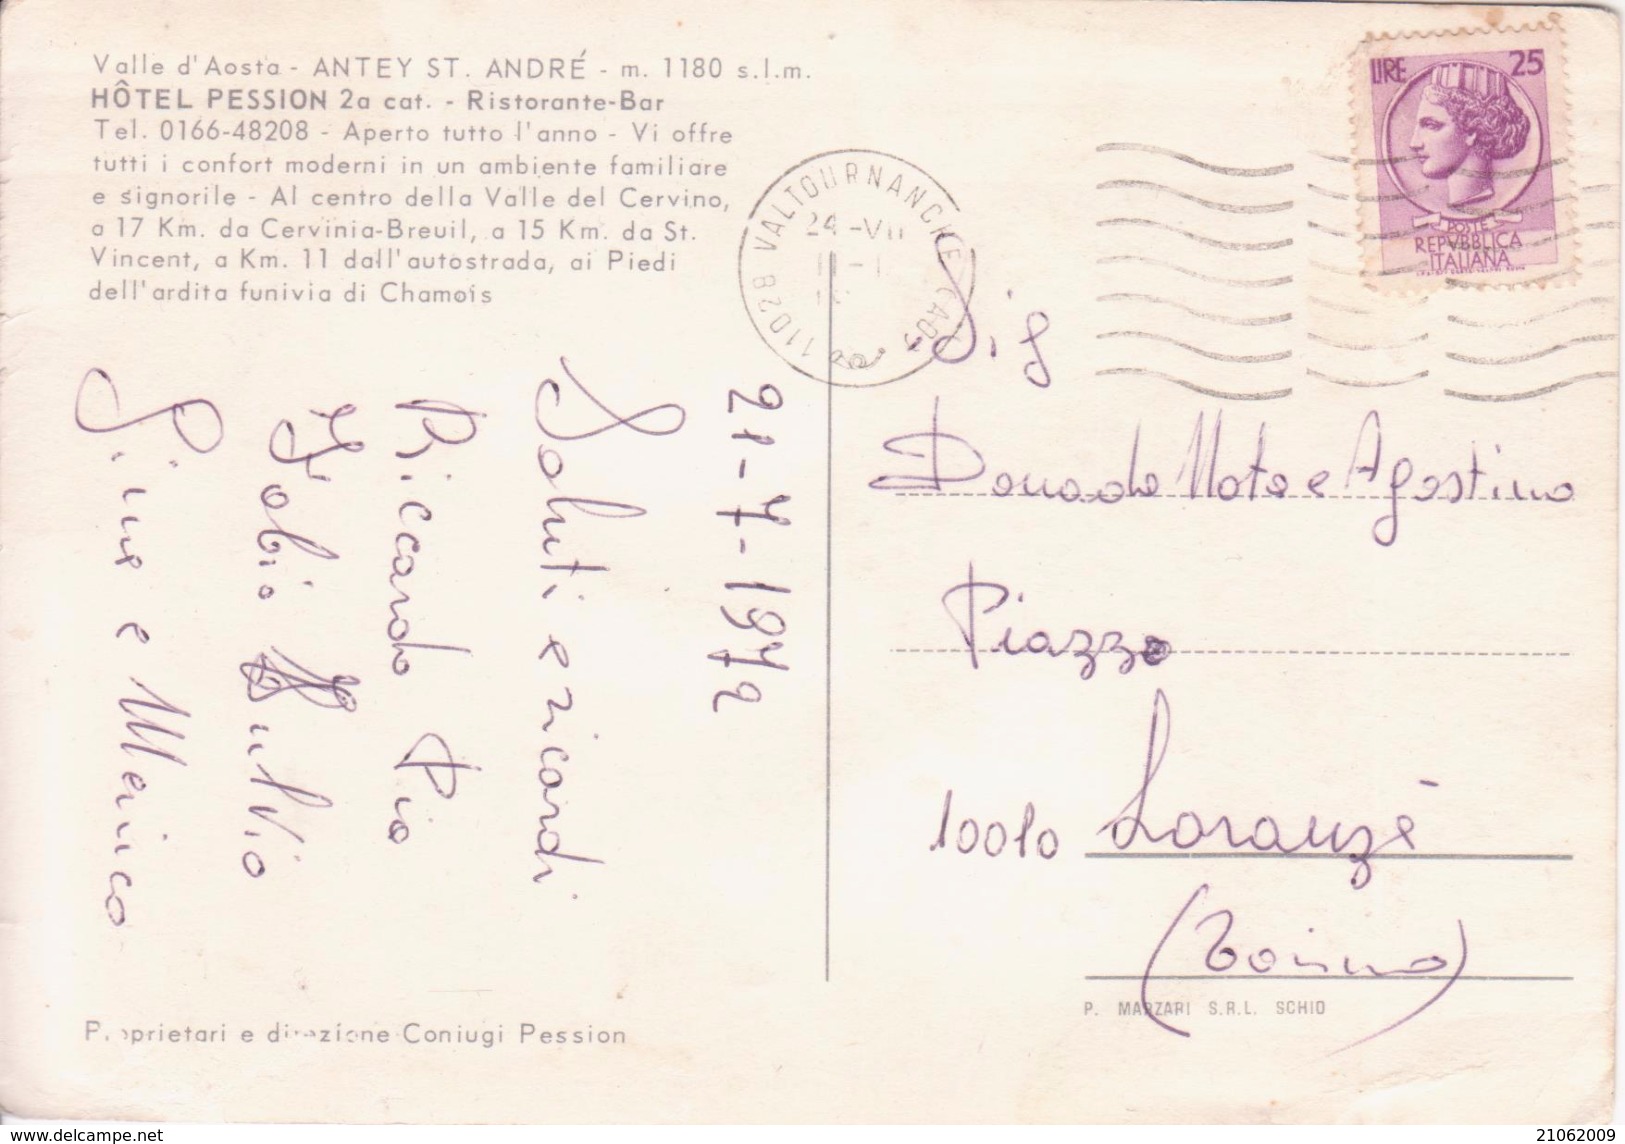 Valle d'Aosta - ANTEY ST. ANDRÉ - m. 1180 s.l.m.
HÔTEL PESSION 2a cat. - Ristorante-Bar
Tel. 0166-48208 - Aperto tutto l'anno - Vi offre
tutti i confort moderni in un ambiente familiare
e signorile - Al centro della Valle del Cervino,
a 17 Km. da Cervinia-Breuil, a 15 Km. da St.
Vincent, a Km. 11 dall'autostrada, ai Piedi
dell'ardita funivia di Chamois
21-7-1972
Saluti e ricordi
Riccardo Pia
Fabio
Pina e
Proprietari e direzione Coniugi Pession
11028 VALTOURNANCHE (AO)
24-VII
LIRE 25
POSTE
REPVBBLICA
ITALIANA
Sig
Donada Nota e Agostino
Piazza
10010 Loranzè
(Torino)
P. MARZARI S.R.L. SCHIO
delcampe.net
21062009